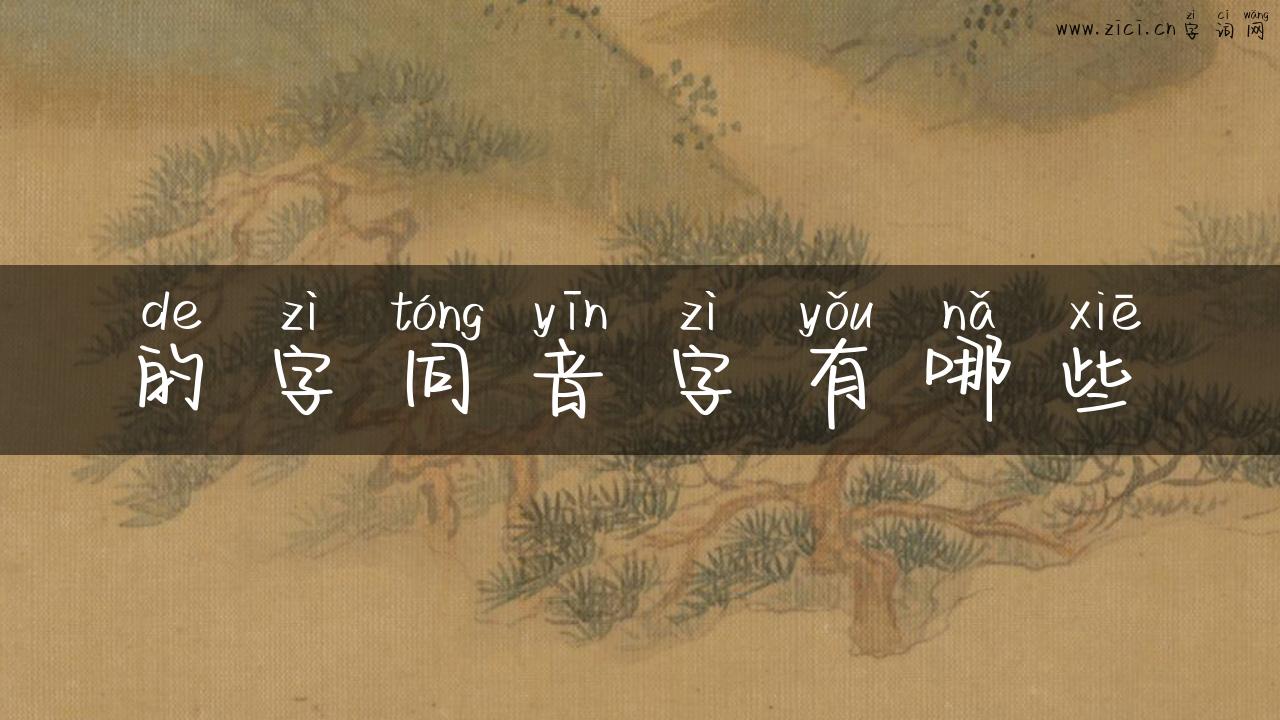 zì cí wǎng
www.zici.cn 字词网
de zì tóng yīn zì yǒu nǎ xiē
的字同音字有哪些